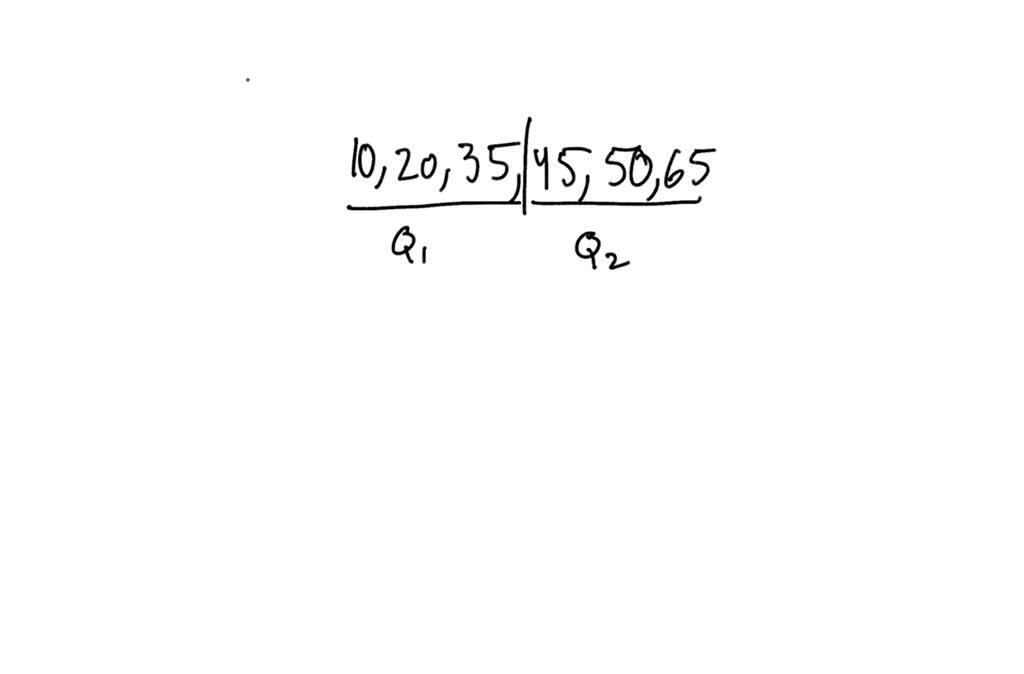 10, 20, 35, | 45, 50, 65
Q1 Q2